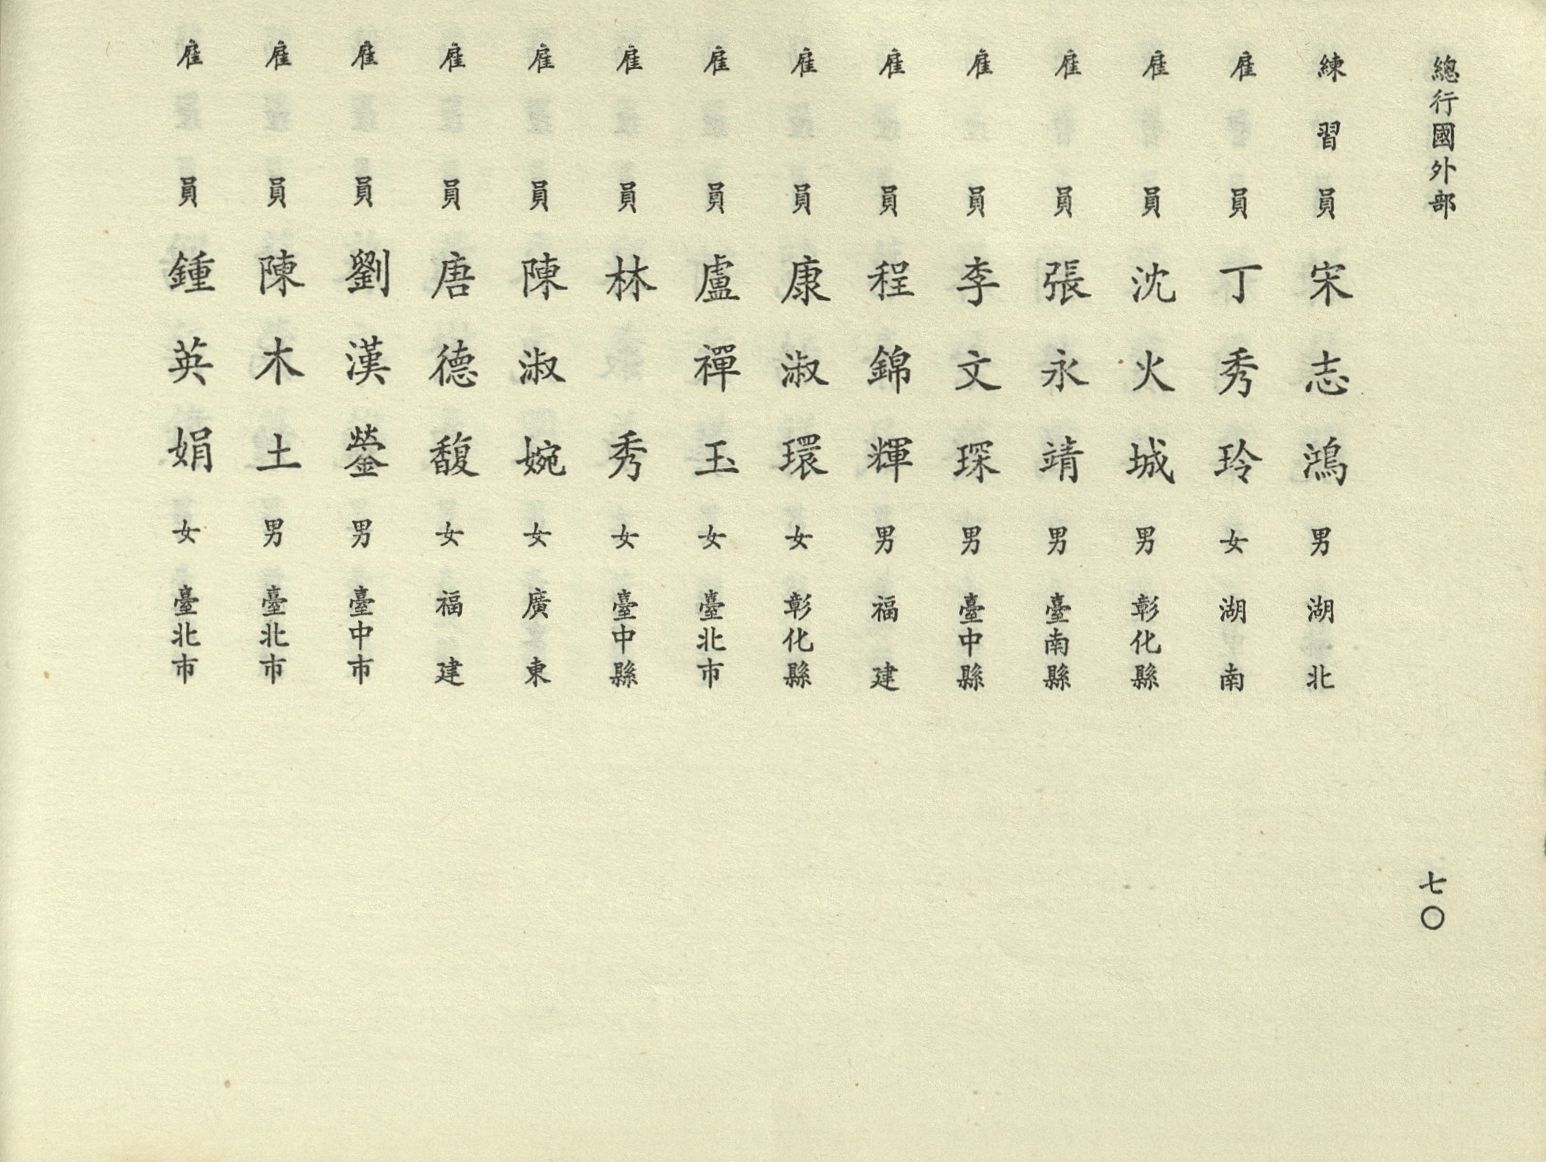 總行國外部
七〇
練習員 宋志鴻 男 湖北
雇員 丁秀玲 女 湖南
雇員 沈火城 男 彰化縣
雇員 張永靖 男 臺南縣
雇員 李文琛 男 臺中縣
雇員 程錦輝 男 福建
雇員 康淑環 女 彰化縣
雇員 盧禪玉 女 臺北市
雇員 林秀 女 臺中縣
雇員 陳淑婉 女 廣東
雇員 唐德馥 女 福建
雇員 劉漢鎣 男 臺中市
雇員 陳木土 男 臺北市
雇員 鍾英娟 女 臺北市